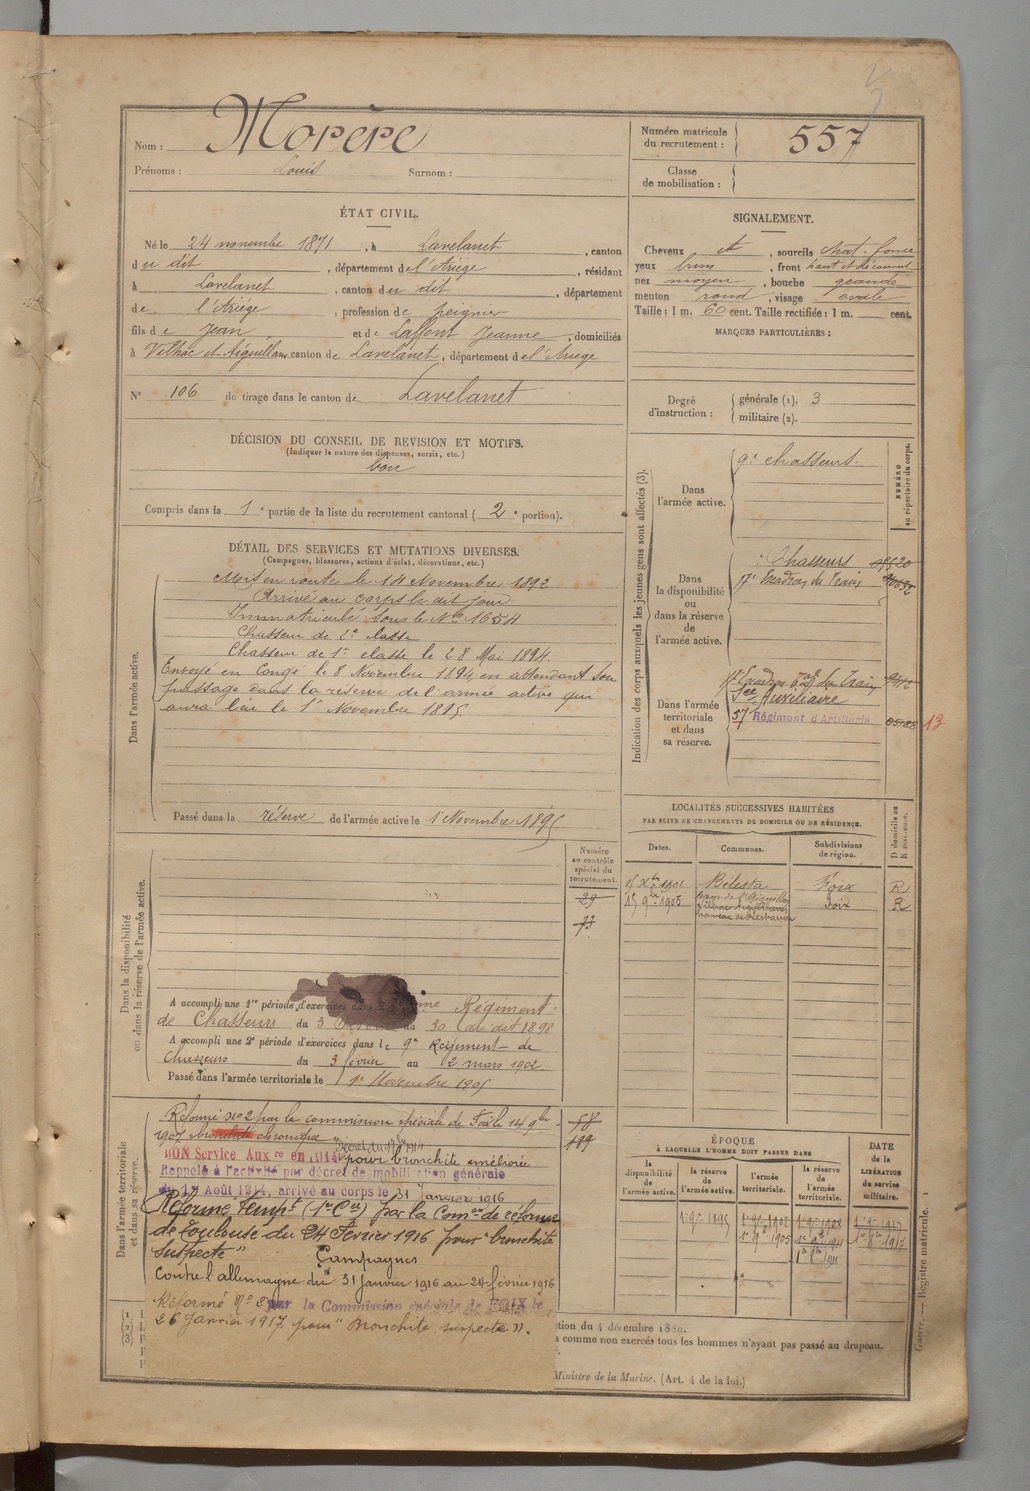 Nom : Morère
Prénoms : Louis Surnom :
Numéro matricule
du recrutement : 557
Classe
de mobilisation :
ÉTAT CIVIL.
Né le 24 novembre 1871, à Lavelanet, canton
du dit, département de l'Ariège, résidant
à Lavelanet, canton du dit, département
de l'Ariège, profession de peignier
fils de Jean et de Laffont Jeanne, domiciliés
à Vilhac et Aiguillanes canton de Lavelanet, département de l'Ariège
N° 106 de tirage dans le canton de Lavelanet
DÉCISION DU CONSEIL DE REVISION ET MOTIFS.
(Indiquer la nature des dispenses, sursis, etc.)
bon
Compris dans la 1e partie de la liste du recrutement cantonal (2e portion).
SIGNALEMENT.
Cheveux et, sourcils chat. foncé
yeux bruns, front haut et découvert
nez moyen, bouche grande
menton rond, visage ovale
Taille : 1 m. 60 cent. Taille rectifiée : 1 m. cent.
MARQUES PARTICULIÈRES :
Degré
d'instruction :
générale (1). 3
militaire (2).
DÉTAIL DES SERVICES ET MUTATIONS DIVERSES.
(Campagnes, blessures, actions d'éclat, décorations, etc.)
Dans l'armée active.
Mis en route le 14 Novembre 1892
Arrivé au corps le dit jour
Immatriculé sous le No 1654
Chasseur de 2e classe
Chasseur de 1e classe le 28 Mai 1894.
Envoyé en Congé le 8 Novembre 1894, en attendant son
passage dans la réserve de l'armée active qui
aura lieu le 1er Novembre 1895.
Passé dans la réserve de l'armée active le 1er Novembre 1895
Indication des corps auxquels les jeunes gens sont affectés (3).
NUMÉRO
au répertoire du corps.
Dans
l'armée active.
9e chasseurs.
Dans
la disponibilité
ou
dans la réserve
de
l'armée active.
Chasseurs
17e Escadron du Train
Dans l'armée
territoriale
et dans
sa réserve.
17e Escadron Tal du Train
Sce Auxiliaire
57e Régiment d'Artillerie 05188 13
LOCALITÉS SUCCESSIVES HABITÉES
PAR SUITE DE CHANGEMENTS DE DOMICILE OU DE RÉSIDENCE.
Dates. Communes. Subdivisions
de région. D domicile ou
R résidence.
15 Xbre 1901 Bélesta Foix R
15 9bre 1905 Foix R
Dans la disponibilité
ou dans la réserve de l'armée active.
Numéro
au contrôle
spécial du
recrutement.
29
73
A accompli une 1re période d'exercices dans Régiment
de Chasseurs du 3 au 30 du dit 1898
A accompli une 2e période d'exercices dans le 9e Régiment de
Chasseurs du 3 février au 2 mars 1902
Passé dans l'armée territoriale le 1er Novembre 1905
Dans l'armée territoriale
et dans sa réserve.
Réformé no 2 par la commission spéciale de Foix le 14 9bre 58
1907 bronchite chronique 199
BON Service Auxre en 1914 pour bronchite améliorée
Rappelé à l'activité par décret de mobilisation générale
du 1er Août 1914, arrivé au corps le 31 Janvier 1916
Réformé Tempt (1re Cie) par la Comon de réforme
de Toulouse du 24 Février 1916 pour "bronchite
suspecte"
Campagnes
Contre l'allemagne du 31 janvier 1916 au 24 février 1916
Réformé No 2 par la Commission spéciale de FOIX le
26 Janvier 1917 pour "Bronchite suspecte".
ÉPOQUE
À LAQUELLE L'HOMME DOIT PASSER DANS
DATE
de la
LIBÉRATION
du service
militaire.
la
disponibilité
de
l'armée active.
la réserve
de
l'armée active.
l'armée
territoriale.
la réserve
de
l'armée
territoriale.
1er 9bre 1895 1er 9bre 1902 1er 9bre 1908 1er 9bre 1917
1er 9bre 1905 1er 9bre 1911 1er 8bre 1917
1er 8bre 1911
ction du 4 décembre 1889.
a comme non exercés tous les hommes n'ayant pas passé au drapeau.
Ministre de la Marine. (Art. 4 de la loi.)
Guerre. — Registre matricule. 1